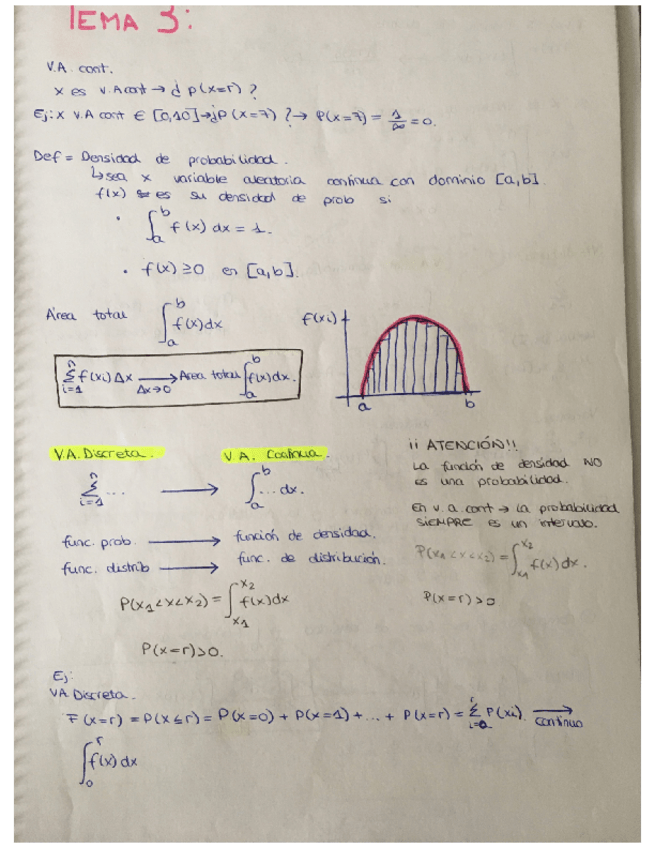 TEMA 3:
V.A. cont.
x es v.A cont → ¿ p(x=r) ?
Ej: x V.A cont ∈ [0,10] → ¿P(x=7) ? → P(x=7) = 1/∞ = 0.
Def = Densidad de probabilidad.
↳ sea x variable aleatoria continua con dominio [a,b]
f(x) es su densidad de prob si
· ∫_a^b f(x) dx = 1.
· f(x) ≥ 0 en [a,b].
Área total ∫_a^b f(x)dx
f(xi)
a b
∑_{i=1}^n f(xi) Δx →_{Δx→0} Area total ∫_a^b f(x)dx.
V.A. Discreta. V.A. Continua.
∑_{i=1}^n ... → ∫_a^b ... dx.
func. prob. → función de densidad.
func. distrib → func. de distribución.
P(x1<x<x2) = ∫_{x1}^{x2} f(x)dx
P(x=r)>0.
¡¡ ATENCIÓN!!
La función de densidad NO
es una probabilidad.
En v.a. cont → la probabilidad
SIEMPRE es un intervalo.
P(x1<x<x2) = ∫_{x1}^{x2} f(x)dx.
P(x=r)>0
Ej:
VA. Discreta.
F(x=r) = P(x≤r) = P(x=0) + P(x=1) + ... + P(x=r) = ∑_{i=0}^r P(xi). → continua
∫_0^r f(x)dx